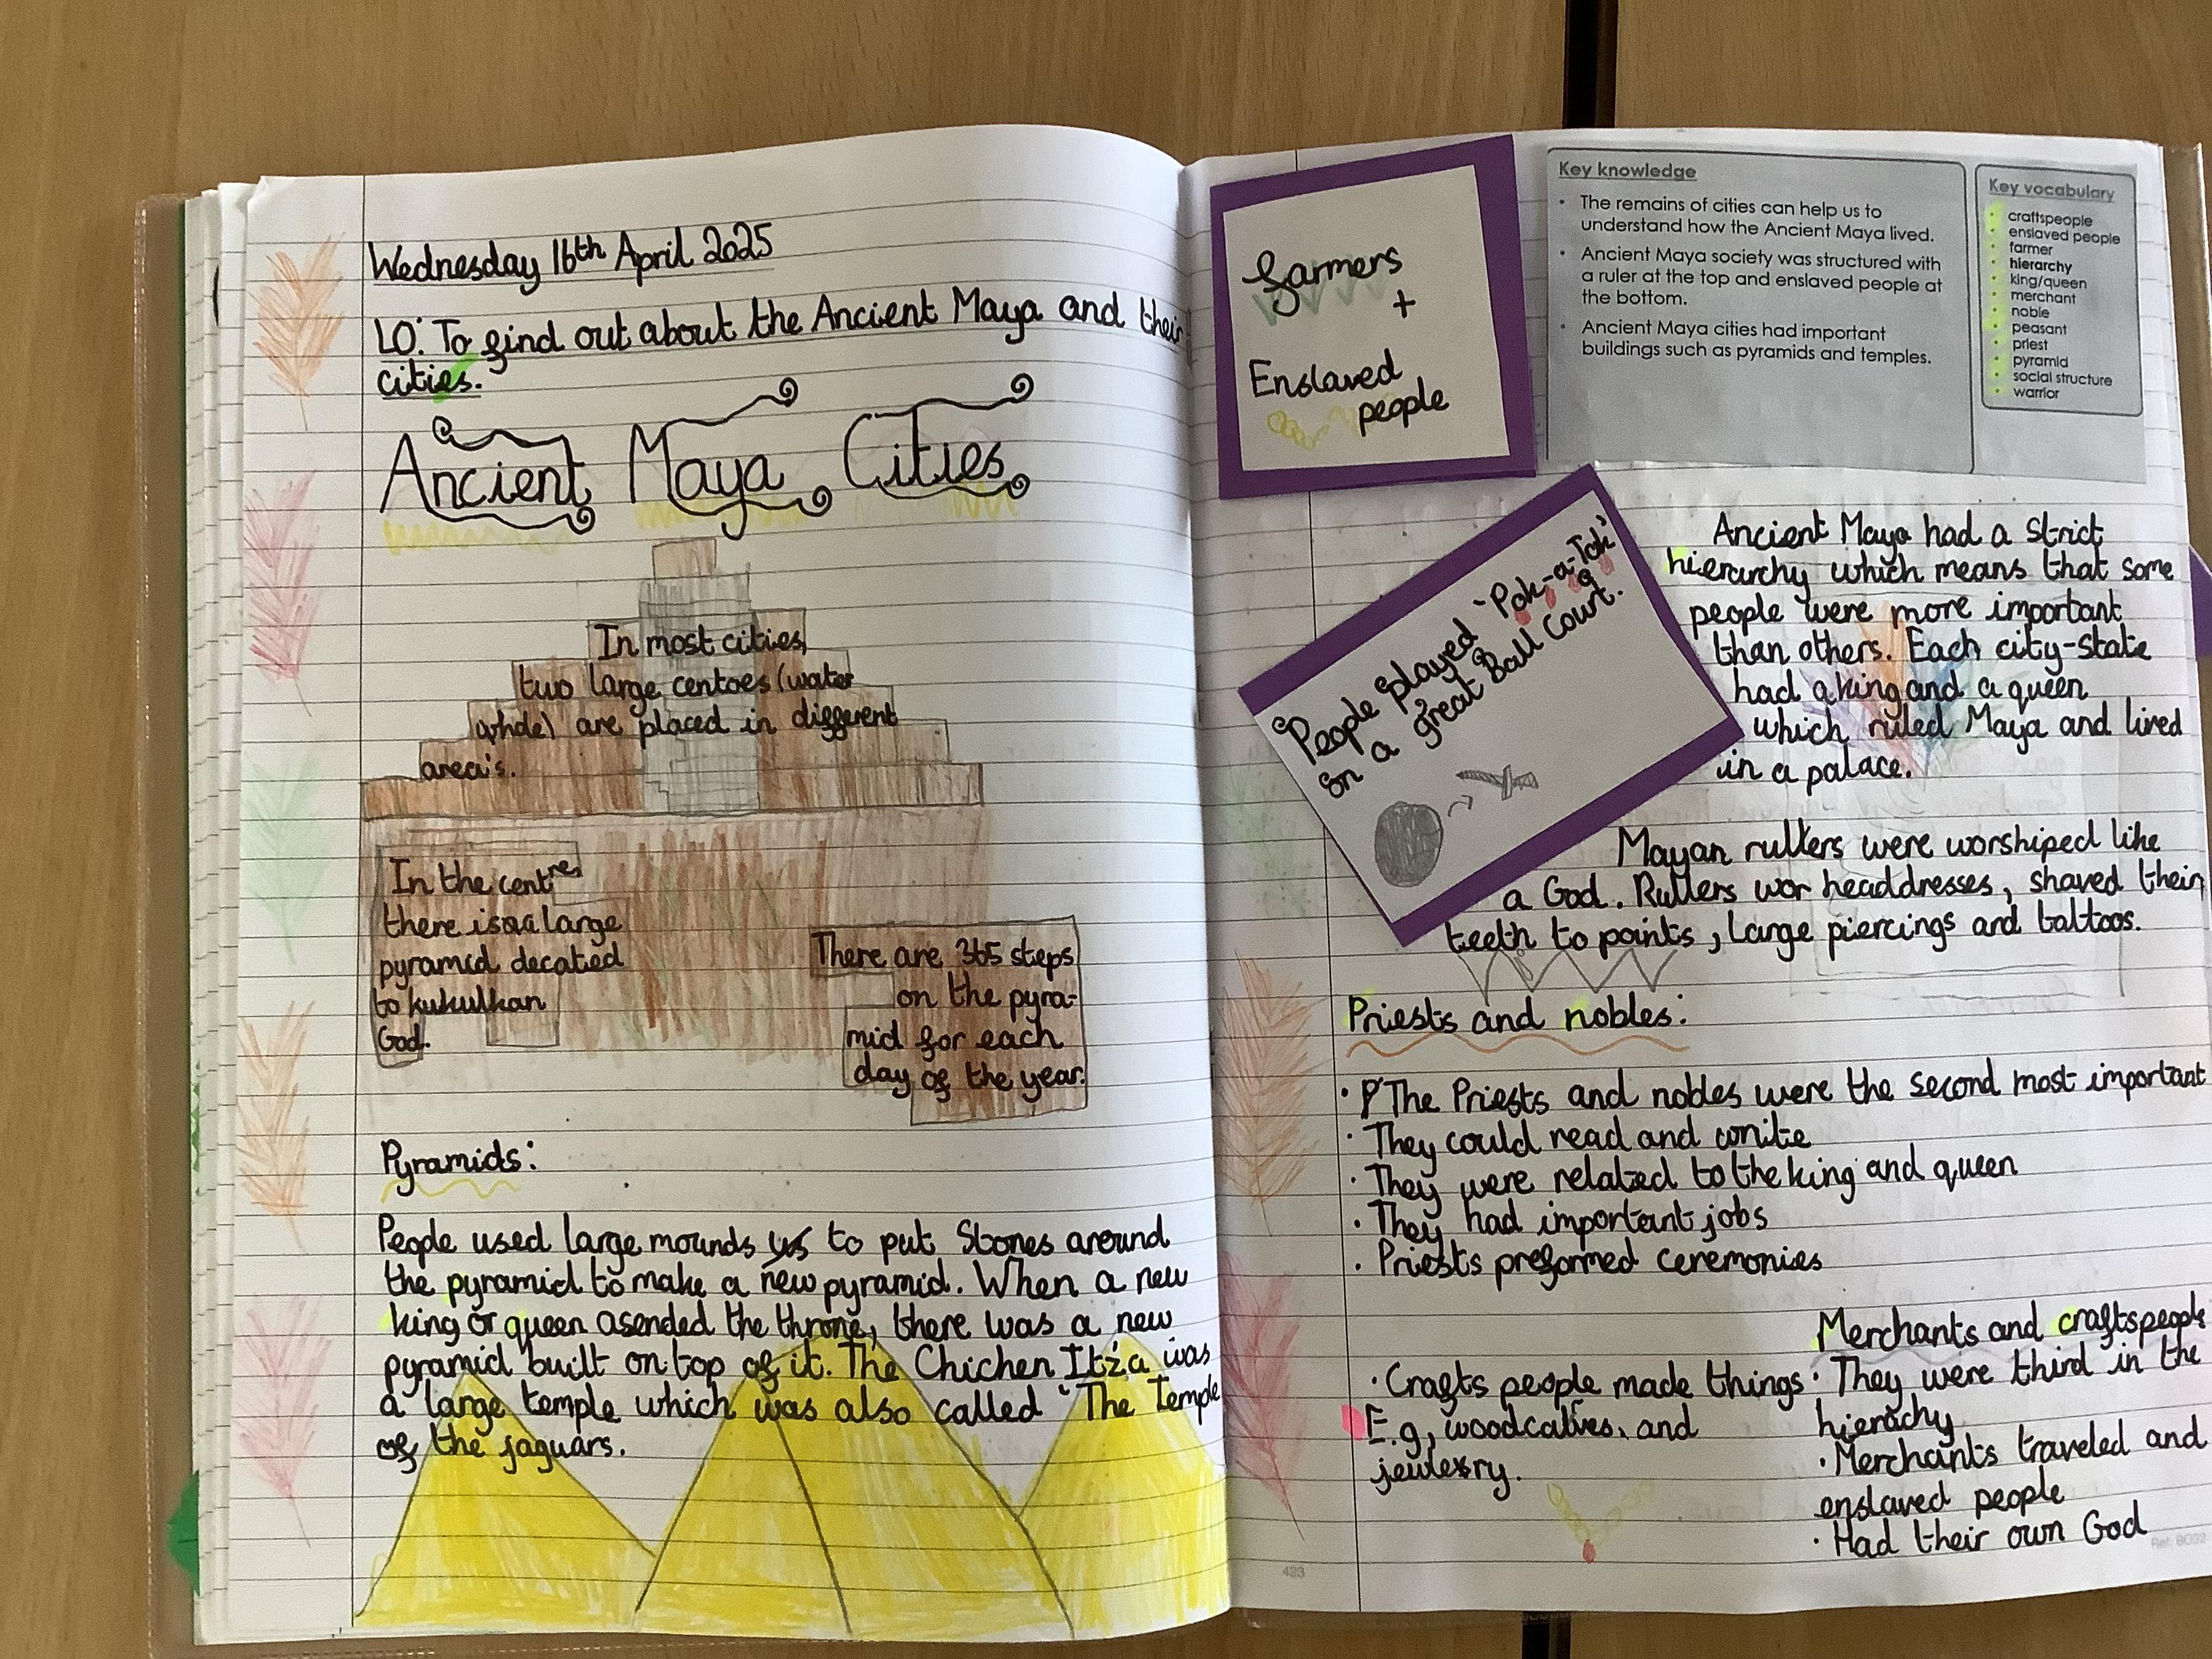 Wednesday 16th April 2025
LO: To find out about the Ancient Maya and their
cities.
Ancient Maya Cities
In most cities,
two large centoes (water
whole) are placed in different
area's.
In the centre
there is a large
pyramid decatied
to kukulkan
God.
There are 365 steps
on the pyra-
mid for each
day of the year.
Pyramids:
People used large mounds us to put Stones around
the pyramid to make a new pyramid. When a new
king or queen asended the throne, there was a new
pyramid built on top of it. The Chichen Itza was
a large temple which was also called "The Temple
of the jaguars.
farmers
+
Enslaved
people
Key knowledge
• The remains of cities can help us to
understand how the Ancient Maya lived.
• Ancient Maya society was structured with
a ruler at the top and enslaved people at
the bottom.
• Ancient Maya cities had important
buildings such as pyramids and temples.
Key vocabulary
• craftspeople
• enslaved people
• farmer
• hierarchy
• king/queen
• merchant
• noble
• peasant
• priest
• pyramid
• social structure
• warrior
People played 'Pok-a-Tok'
on a great Ball Court.
Ancient Maya had a strict
hierarchy which means that some
people were more important
than others. Each city-state
had a king and a queen
which ruled Maya and lived
in a palace.
Mayan rullers were worshiped like
a God. Rullers wor headdresses, shaved their
teeth to points, large piercings and tattoos.
Priests and nobles:
• The Priests and nobles were the second most important
• They could read and write
• They were related to the king and queen
• They had important jobs
• Priests preformed ceremonies
Merchants and craftspeople
• They were third in the
hierachy
• Merchants traveled and
enslaved people
• Had their own God
• Crafts people made things
E.g, woodcalves, and
jewlery.
423